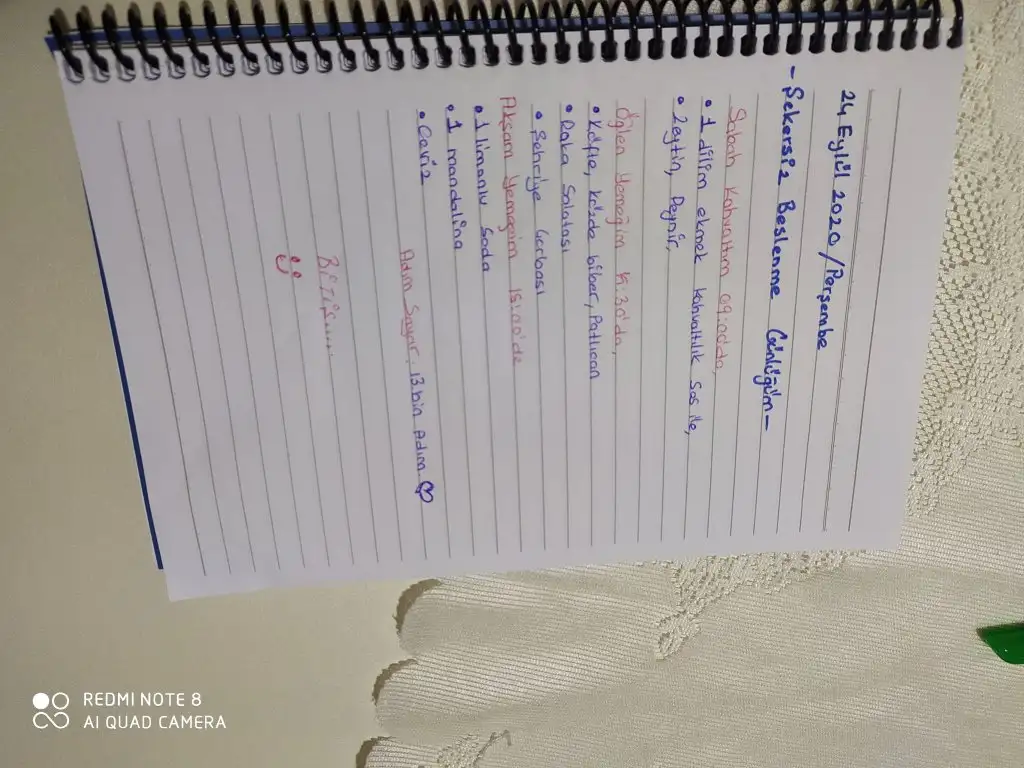 24 Eylül 2020/Perşembe
- Şekersiz Beslenme Günlüğüm -
Sabah Kahvaltım 09.00'da,
• 1 dilim ekmek kahvaltılık sos ile,
• Zeytin, Peynir,
Öğlen Yemeğim 15.30'da,
• Köfte, közde biber, Patlıcan
• Roka Salatası
• Şehriye Çorbası
Akşam Yemeğim 18.00'de
• 1 limonlu Soda
• 1 mandalina
• Ceviz
Adım Sayar, 13 bin Adım ♡
Bitiş....
REDMI NOTE 8
AI QUAD CAMERA